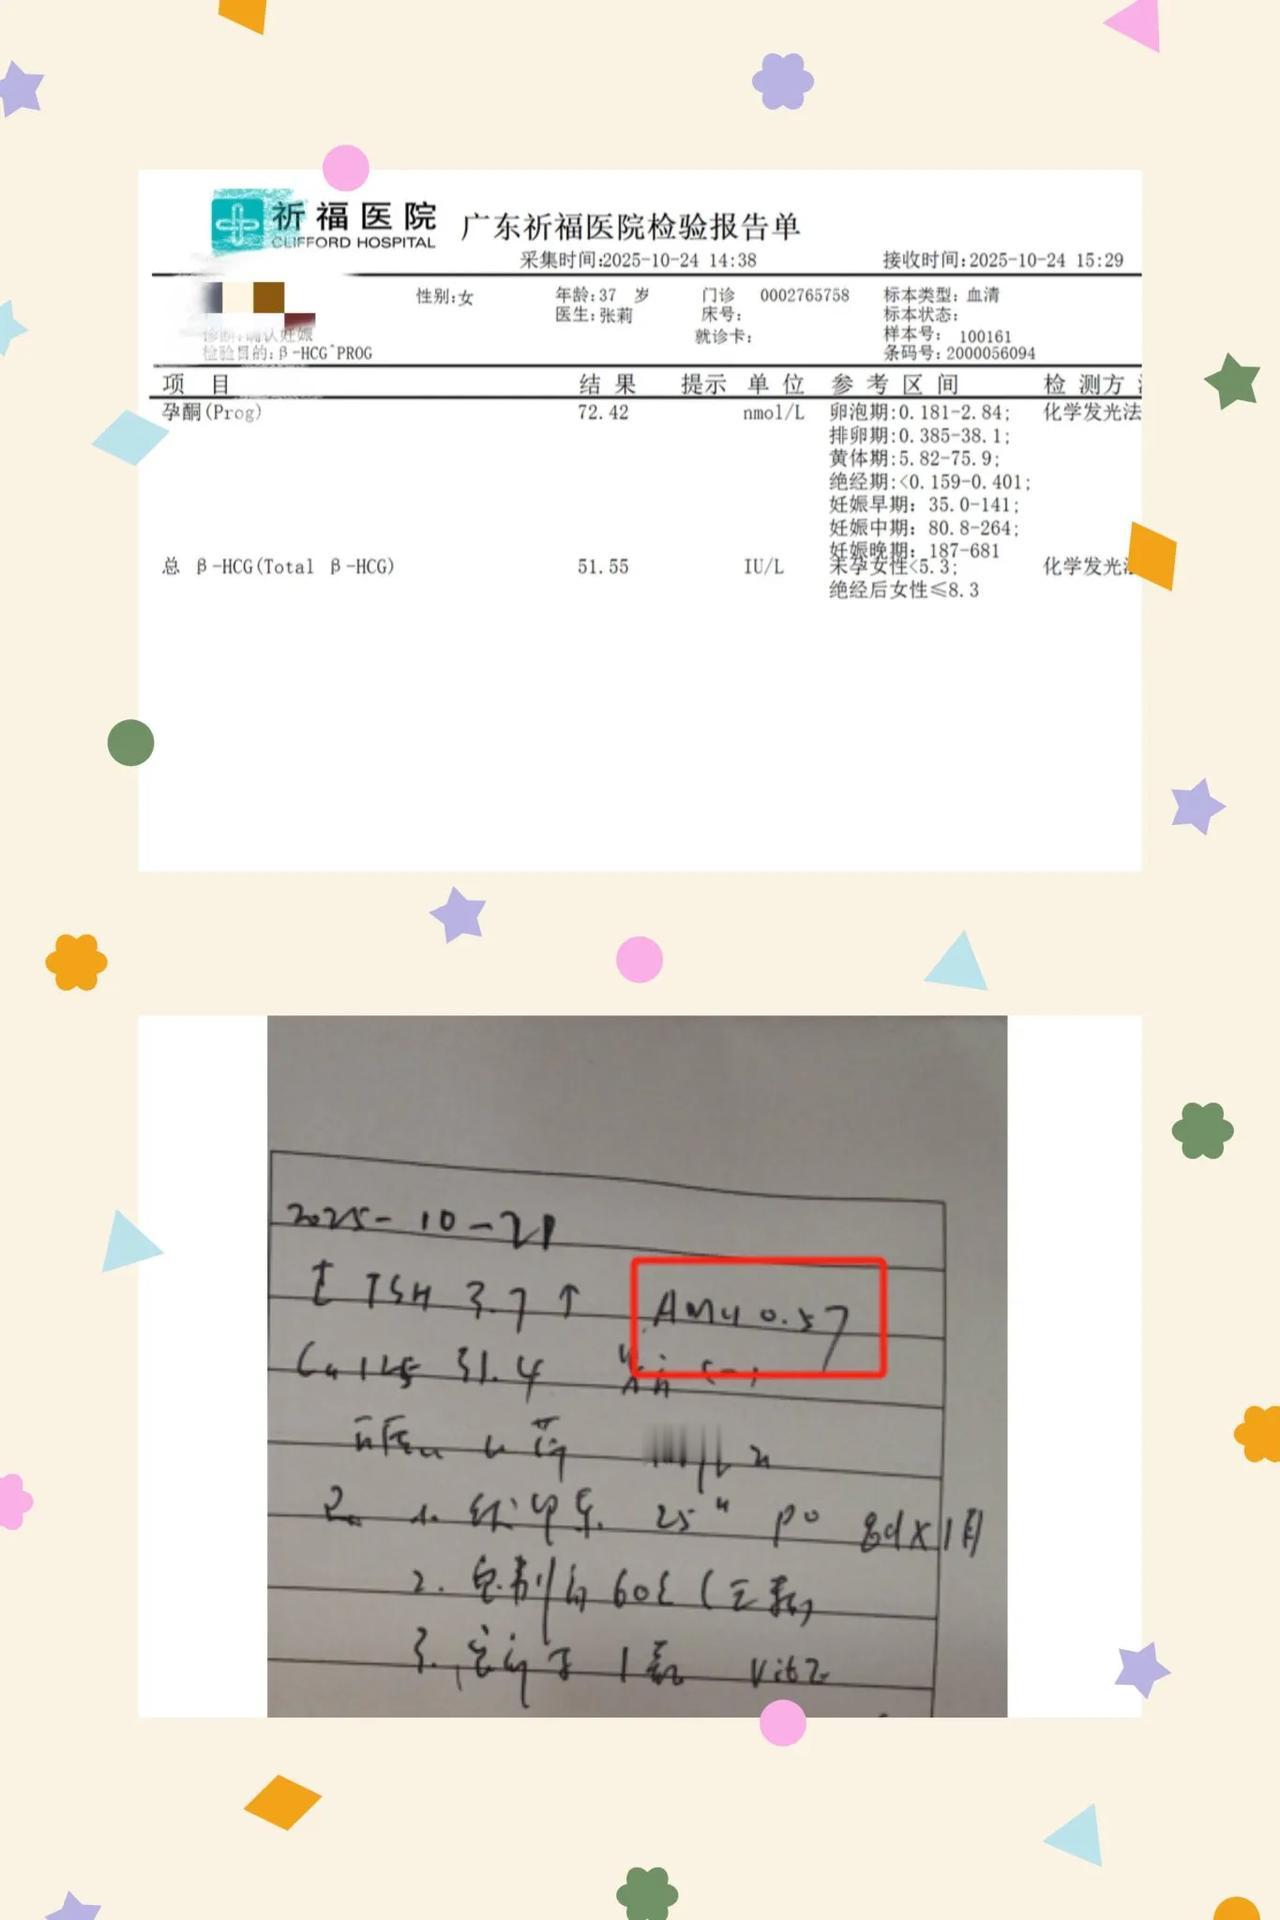 祈福医院
CLIFFORD HOSPITAL
广东祈福医院检验报告单
采集时间:2025-10-24 14:38 接收时间:2025-10-24 15:29
性别:女 年龄:37 岁 门诊 0002765758 标本类型:血清
医生:张莉 床号: 标本状态:
诊断:确认妊娠 就诊卡: 样本号: 100161
检验目的:β-HCG^PROG 条码号:2000056094
项 目 结 果 提示 单 位 参 考 区 间 检 测方
孕酮(Prog) 72.42 nmol/L 卵泡期:0.181-2.84; 化学发光法
排卵期:0.385-38.1;
黄体期:5.82-75.9;
绝经期:<0.159-0.401;
妊娠早期: 35.0-141;
妊娠中期: 80.8-264;
妊娠晚期: 187-681
总 β-HCG(Total β-HCG) 51.55 IU/L 未孕女性<5.3; 化学发光
绝经后女性≤8.3
2025-10-21
TSH 3.7 ↑ AMH 0.57
Ca125 31.4 (-)
25 po qd×1月
2.
3.